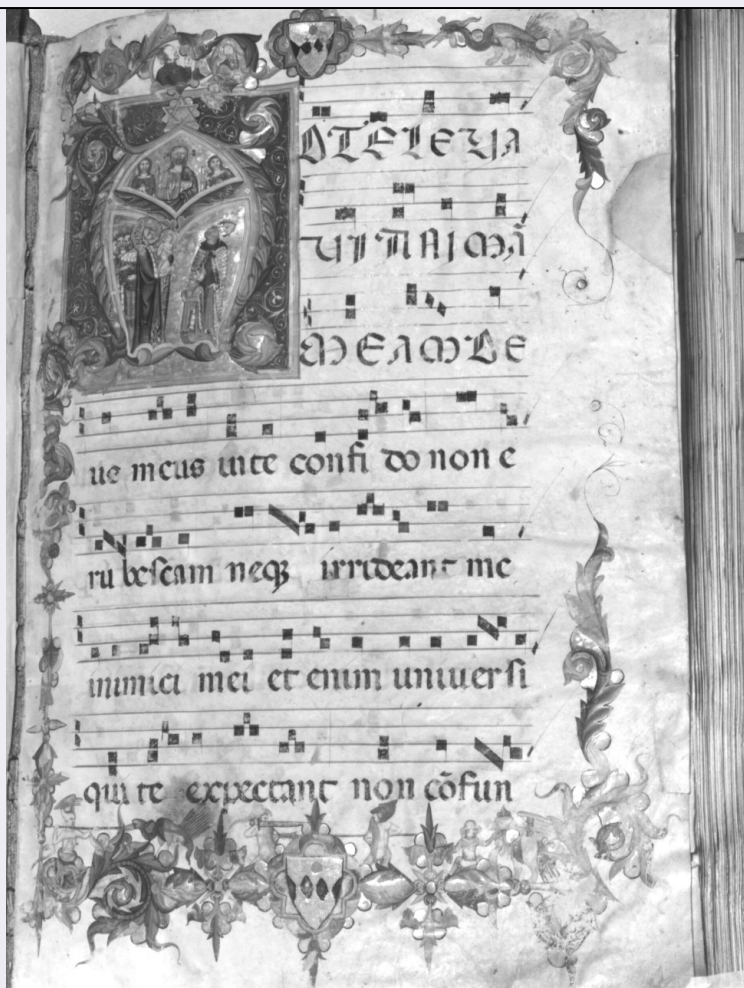 AD TE LEVA
VI ANIMĀ
MEAM DE
us meus in te confi do non e
ru bescam neqꝫ irrideant me
inimici mei et enim universi
qui te expectant non cōfun